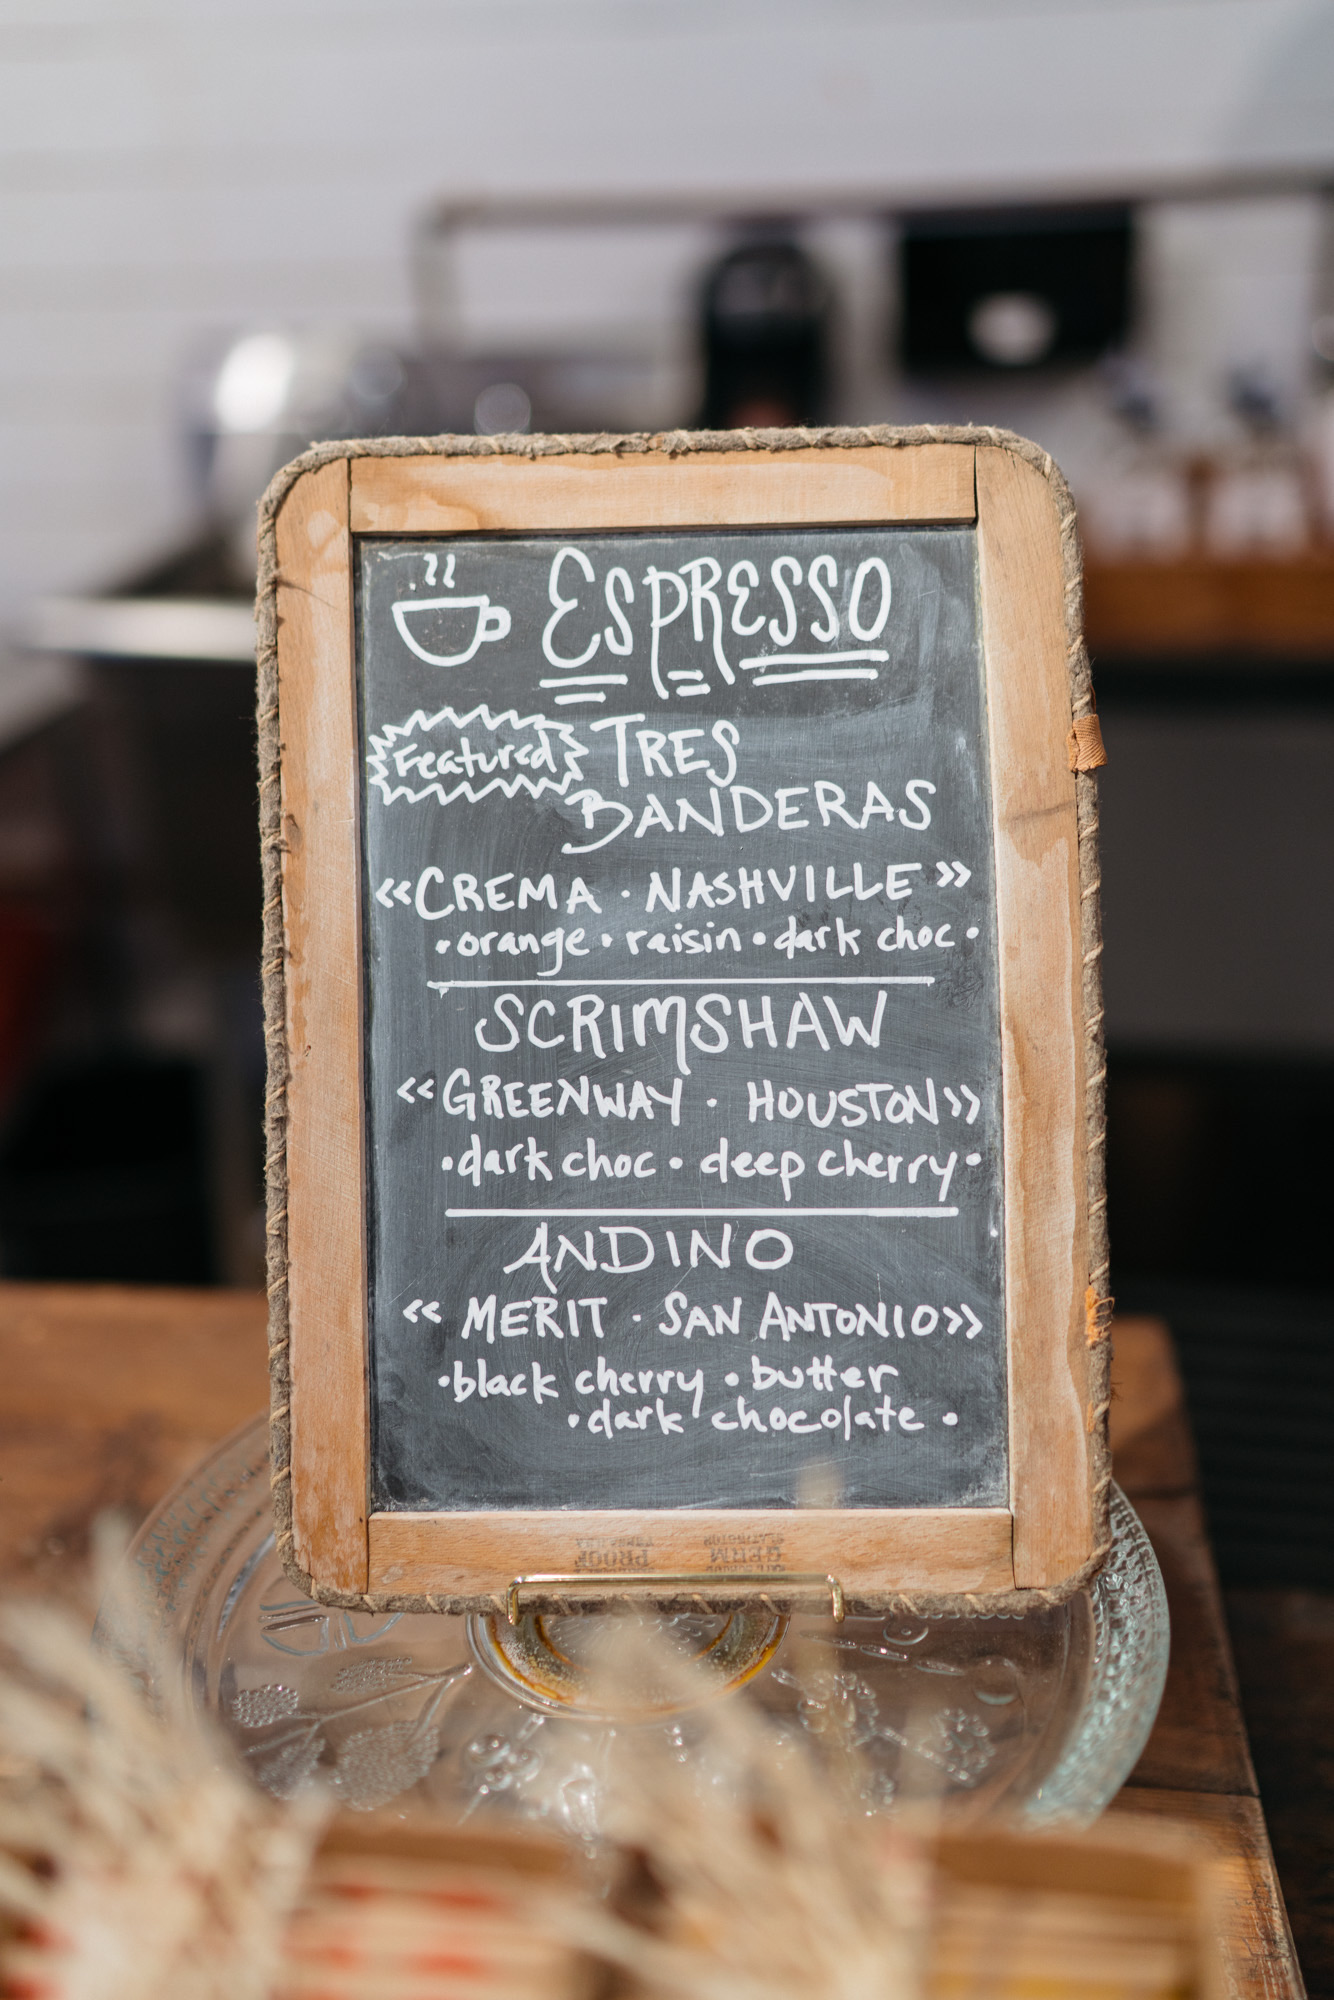 ESPRESSO
Featured TRES
BANDERAS
«CREMA · NASHVILLE»
•orange • raisin • dark choc •
SCRIMSHAW
«GREENWAY · HOUSTON»
•dark choc • deep cherry•
ANDINO
« MERIT · SAN ANTONIO»
•black cherry • butter
•dark chocolate •
GERM
PROOF